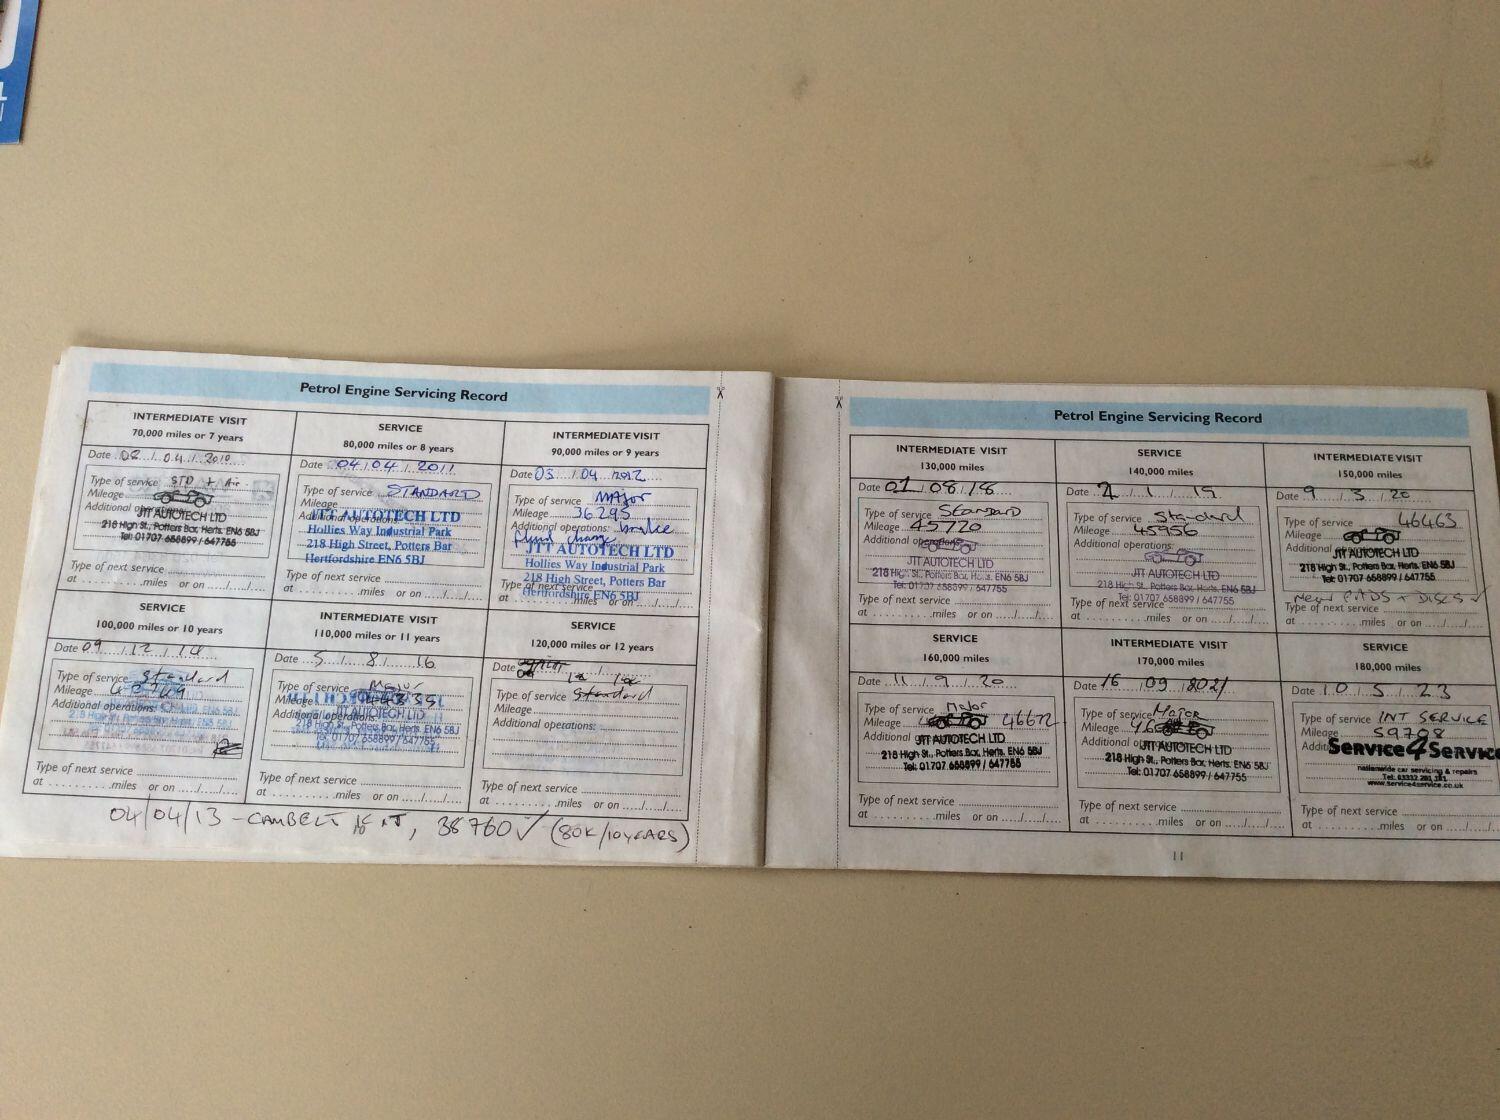 Petrol Engine Servicing Record
INTERMEDIATE VISIT
70,000 miles or 7 years
Date 02/04/2010
Type of service STD + Air
Mileage
Additional operations:
JTT AUTOTECH LTD
218 High St., Potters Bar, Herts. EN6 5BJ
Tel: 01707 658899 / 647755
Type of next service
at miles or on
SERVICE
80,000 miles or 8 years
Date 04/04/2011
Type of service STANDARD
Mileage
Additional operations:
JTT AUTOTECH LTD
Hollies Way Industrial Park
218 High Street, Potters Bar
Hertfordshire EN6 5BJ
Type of next service
at miles or on
INTERMEDIATE VISIT
90,000 miles or 9 years
Date 03/04/2012
Type of service Major
Mileage 36295
Additional operations: brake
fluid change
JTT AUTOTECH LTD
Hollies Way Industrial Park
218 High Street, Potters Bar
Hertfordshire EN6 5BJ
Type of next service
at miles or on
SERVICE
100,000 miles or 10 years
Date 09/12/14
Type of service Standard
Mileage
Additional operations:
Type of next service
at miles or on
INTERMEDIATE VISIT
110,000 miles or 11 years
Date 5/8/16
Type of service Major
Mileage
Additional operations:
JTT AUTOTECH LTD
218 High St., Potters Bar, Herts. EN6 5BJ
Tel: 01707 658899 / 647755
Type of next service
at miles or on
SERVICE
120,000 miles or 12 years
Date
Type of service Standard
Mileage
Additional operations:
Type of next service
at miles or on
04/04/13 - CAMBELT KIT, 38760 ✓ (80K/10YEARS)
Petrol Engine Servicing Record
INTERMEDIATE VISIT
130,000 miles
Date 01/08/18
Type of service Standard
Mileage 45720
Additional operations:
JTT AUTOTECH LTD
218 High St., Potters Bar, Herts. EN6 5BJ
Tel: 01707 658899 / 647755
Type of next service
at miles or on
SERVICE
140,000 miles
Date 2/1/19
Type of service Standard
Mileage 45956
Additional operations:
JTT AUTOTECH LTD
218 High St., Potters Bar, Herts. EN6 5BJ
Tel: 01707 658899 / 647755
Type of next service
at miles or on
INTERMEDIATE VISIT
150,000 miles
Date 9/3/20
Type of service 46463
Mileage
Additional
JTT AUTOTECH LTD
218 High St., Potters Bar, Herts. EN6 5BJ
Tel: 01707 658899 / 647755
New PADS + DISCS ✓
Type of next service
at miles or on
SERVICE
160,000 miles
Date 11/9/20
Type of service Major
Mileage 46672
Additional
JTT AUTOTECH LTD
218 High St., Potters Bar, Herts. EN6 5BJ
Tel: 01707 658899 / 647755
Type of next service
at miles or on
INTERMEDIATE VISIT
170,000 miles
Date 16/09/2021
Type of service Major
Mileage
Additional
JTT AUTOTECH LTD
218 High St., Potters Bar, Herts. EN6 5BJ
Tel: 01707 658899 / 647755
Type of next service
at miles or on
SERVICE
180,000 miles
Date 10/5/23
Type of service INT SERVICE
Mileage 59708
Service4Service
nationwide car servicing & repairs
www.service4service.co.uk
Type of next service
at miles or on
11